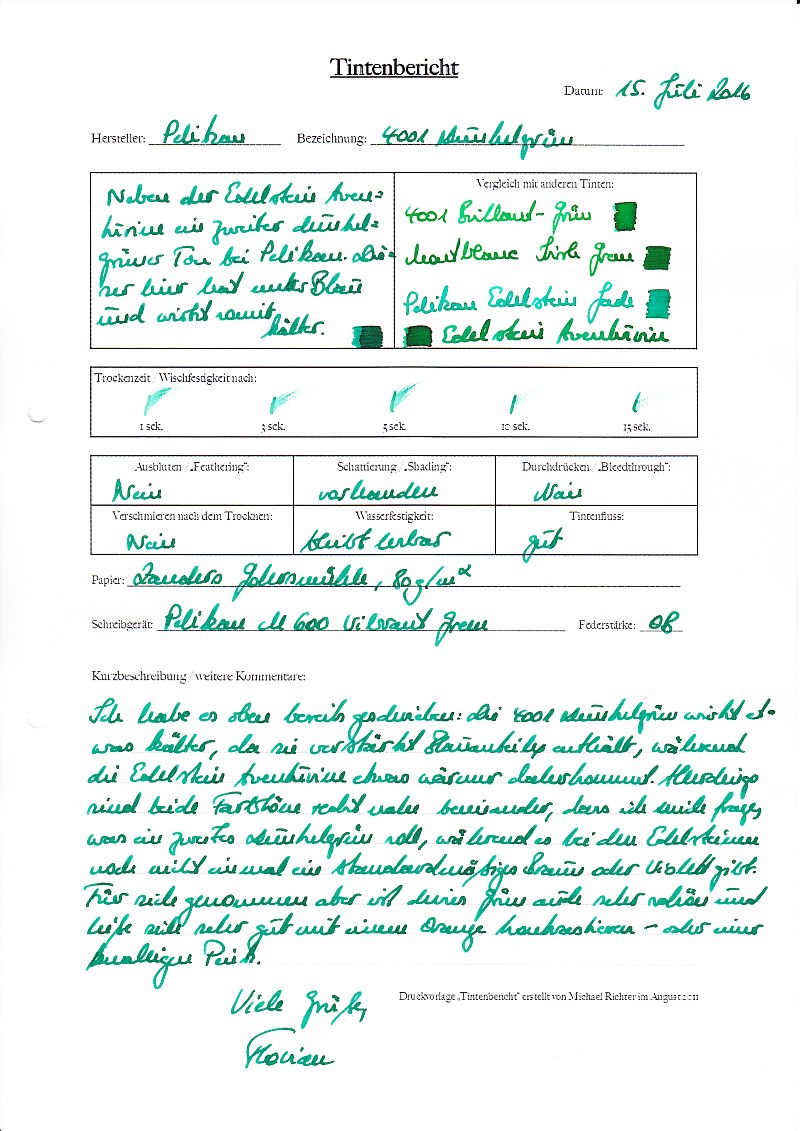 Tintenbericht
Datum: 15. Juli 2016
Hersteller: Pelikan Bezeichnung: 4001 Dunkelgrün
Neben der Edelstein Aven-
turine ein zweiter dunkel-
grüner Ton bei Pelikan. Die-
ser hier hat mehr Blau
und wirkt somit
kälter.
Vergleich mit anderen Tinten:
4001 Brillant-Grün
Montblanc Irish Green
Pelikan Edelstein Jade
Edelstein Aventurin
Trockenzeit / Wischfestigkeit nach:
1 sek. 3 sek. 5 sek. 10 sek. 15 sek.
Ausbluten / „Feathering": Schattierung / „Shading": Durchdrücken / „Bleedthrough":
Nein vorhanden Nein
Verschmieren nach dem Trocknen: Wasserfestigkeit: Tintenfluss:
Nein bleibt lesbar gut
Papier: Zanders Gohrsmühle, 80 g/m²
Schreibgerät: Pelikan M 600 Vibrant Green Federstärke: OB
Kurzbeschreibung / weitere Kommentare:
Ich habe es oben bereits geschrieben: die 4001 Dunkelgrün wirkt et-
was kälter, da sie verstärkt Blauanteile enthält, während
die Edelstein Aventurine etwas wärmer daherkommt. Allerdings
sind beide Farbtöne recht nahe beieinander, dass ich mich frage,
was ein zweites Dunkelgrün soll, während es bei den Edelsteinen
noch nicht einmal ein standardmäßiges Braun oder Violett gibt.
Für sich genommen aber ist dieses Grün auch sehr schön und
ließe sich sehr gut mit einem Orange kontrastieren – oder einem
knalligen Pink.
Viele Grüße,
Florian
Druckvorlage „Tintenbericht" erstellt von Michael Richter im August 2011